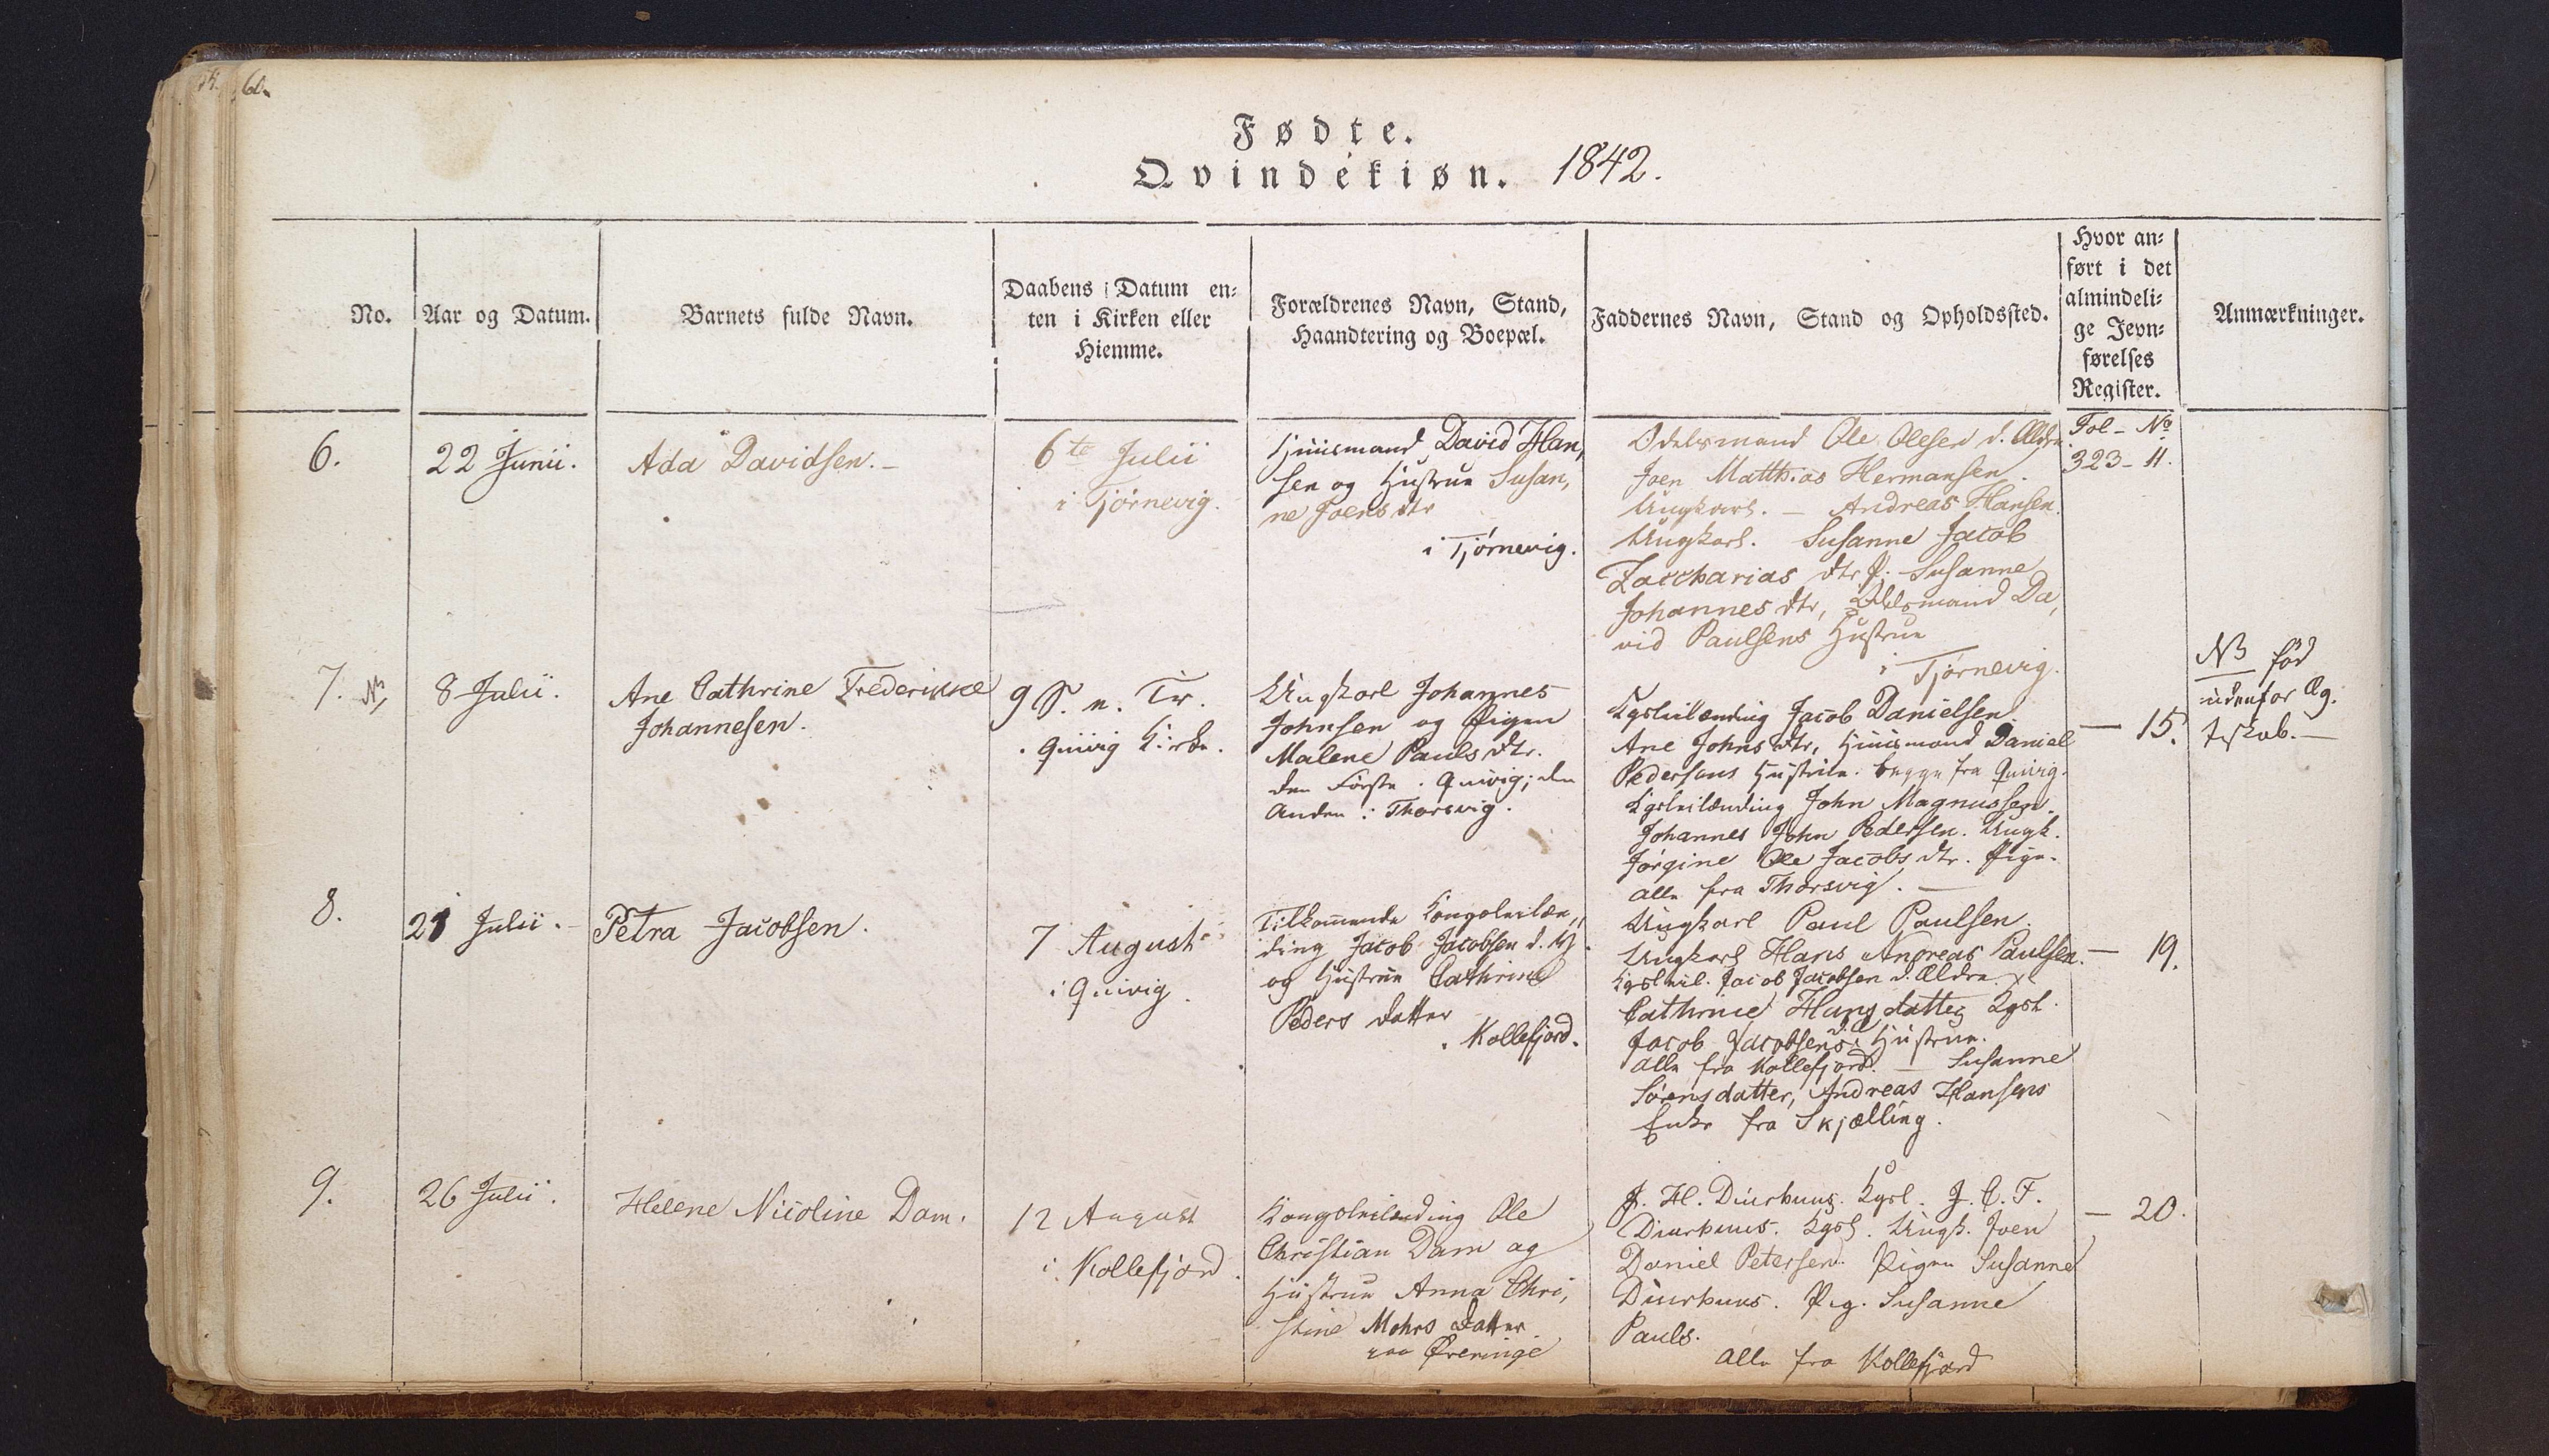 60.
Fødte.
Qvindekiøn. 1842.
No.
Aar og Datum.
Barnets fulde Navn.
Daabens Datum en-
ten i Kirken eller
Hiemme.
Forældrenes Navn, Stand,
Haandtering og Boepæl.
Faddernes Navn, Stand og Opholdssted.
Hvor an-
ført i det
almindeli-
ge Jevn-
førelses
Register.
Anmærkninger.
6.
22 Junii.
Ada Davidsen.
6te Julii
i Tjørnevig.
Huusmand David Han,
sen og Hustrue Susan,
ne Joensdtr
i Tjørnevig.
Odelsmand Ole Olesen d. Ældre
Joen Matthias Hermansen
Ungkarl. — Andreas Hansen.
Ungkarl. Susanne Jacob
Zaccharias dtr P. Susanne
Johannes dtr, Odelsmand Da,
vid Paulsens Hustrue
i Tjørnevig.
Fol - No
323 - 11.
7. NB
8 Julii.
Ane Cathrine Frederikke
Johannesen.
9 S. n. Tr.
i Qvivig Kirke.
Ungkarl Johannes
Johnsen og Pigen
Malene Paulsdtr.
den Første i Qvivig; den
Anden i Thorsvig.
Kgsleilænding Jacob Danielsen
Ane Johnsdtr, Huusmand Daniel
Pedersens Hustrue. begge fra Qvivig.
Kgsleilænding John Magnussen.
Johannes John Pedersen. Ungk.
Jørgine Ole Jacobs dtr. Pige.
alle fra Thorsvig. —
— 15.
NB fød
udenfor Æg-
teskab. —
8.
21 Julii.
Petra Jacobsen.
7 August
i Qvivig.
Tilkommende Kongsleilæn,
ding Jacob Jacobsen d. Y.
og Hustrue Cathrine
Peders datter
i Kollefjord.
Ungkarl Paul Paulsen.
Ungkarl Hans Andreas Paulsen.
Kgsleil. Jacob Jacobsen d. Ældre
Cathrine Hans datter Kgsl.
Jacob Jacobsens Hustrue.
alle fra Kollefjord. — Susanne
Sørens datter, Andreas Hansens
Enke fra Skjælling.
— 19.
9.
26 Julii.
Helene Nicoline Dam.
12 August
i Kollefjord.
Kongsleilænding Ole
Christian Dam og
Hustrue Anna Chri,
stine Mohrs datter
paa Øreringe
J. H. Diurhuus. Kgsl. J. C. F.
Diurhuus. Kgsl. Ungk. Joen
Daniel Petersen. Pigen Susanne
Diurhuus. Pig. Susanne
Pauls.
alle fra Kollefjord
— 20.